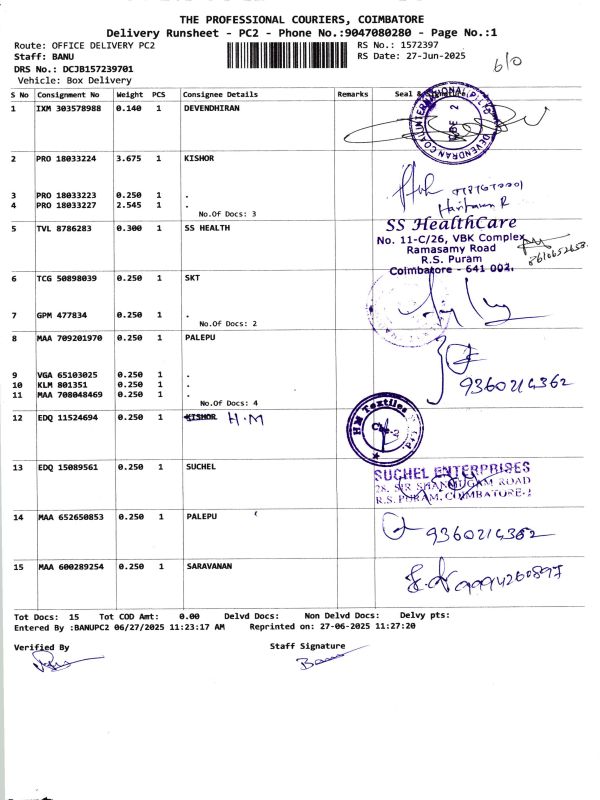 THE PROFESSIONAL COURIERS, COIMBATORE
Delivery Runsheet - PC2 - Phone No.:9047080280 - Page No.:1
Route: OFFICE DELIVERY PC2
RS No.: 1572397
Staff: BANU
RS Date: 27-Jun-2025
DRS No.: DCJB157239701
Vehicle: Box Delivery
S No Consignment No Weight PCS Consignee Details Remarks Seal &
1 IXM 303578988 0.140 1 DEVENDHIRAN
2 PRO 18033224 3.675 1 KISHOR
3 PRO 18033223 0.250 1 .
4 PRO 18033227 2.545 1 .
No.Of Docs: 3
Haritharan R
5 TVL 8786283 0.300 1 SS HEALTH
SS HealthCare
No. 11-C/26, VBK Complex,
Ramasamy Road
R.S. Puram
Coimbatore - 641 002.
8610652658
6 TCG 50898039 0.250 1 SKT
7 GPM 477834 0.250 1 .
No.Of Docs: 2
8 MAA 709201970 0.250 1 PALEPU
9 VGA 65103025 0.250 1 .
10 KLM 801351 0.250 1 .
11 MAA 708048469 0.250 1 .
No.Of Docs: 4
9360214362
12 EDQ 11524694 0.250 1 KISHOR H.M
HM Textiles
13 EDQ 15089561 0.250 1 SUCHEL
SUCHEL ENTERPRISES
28, SIR SHANMUGAM ROAD
R.S. PURAM, COIMBATORE-2
14 MAA 652650853 0.250 1 PALEPU
9360214362
15 MAA 600289254 0.250 1 SARAVANAN
9994260897
Tot Docs: 15 Tot COD Amt: 0.00 Delvd Docs: Non Delvd Docs: Delvy pts:
Entered By :BANUPC2 06/27/2025 11:23:17 AM Reprinted on: 27-06-2025 11:27:20
Verified By
Staff Signature
Banu